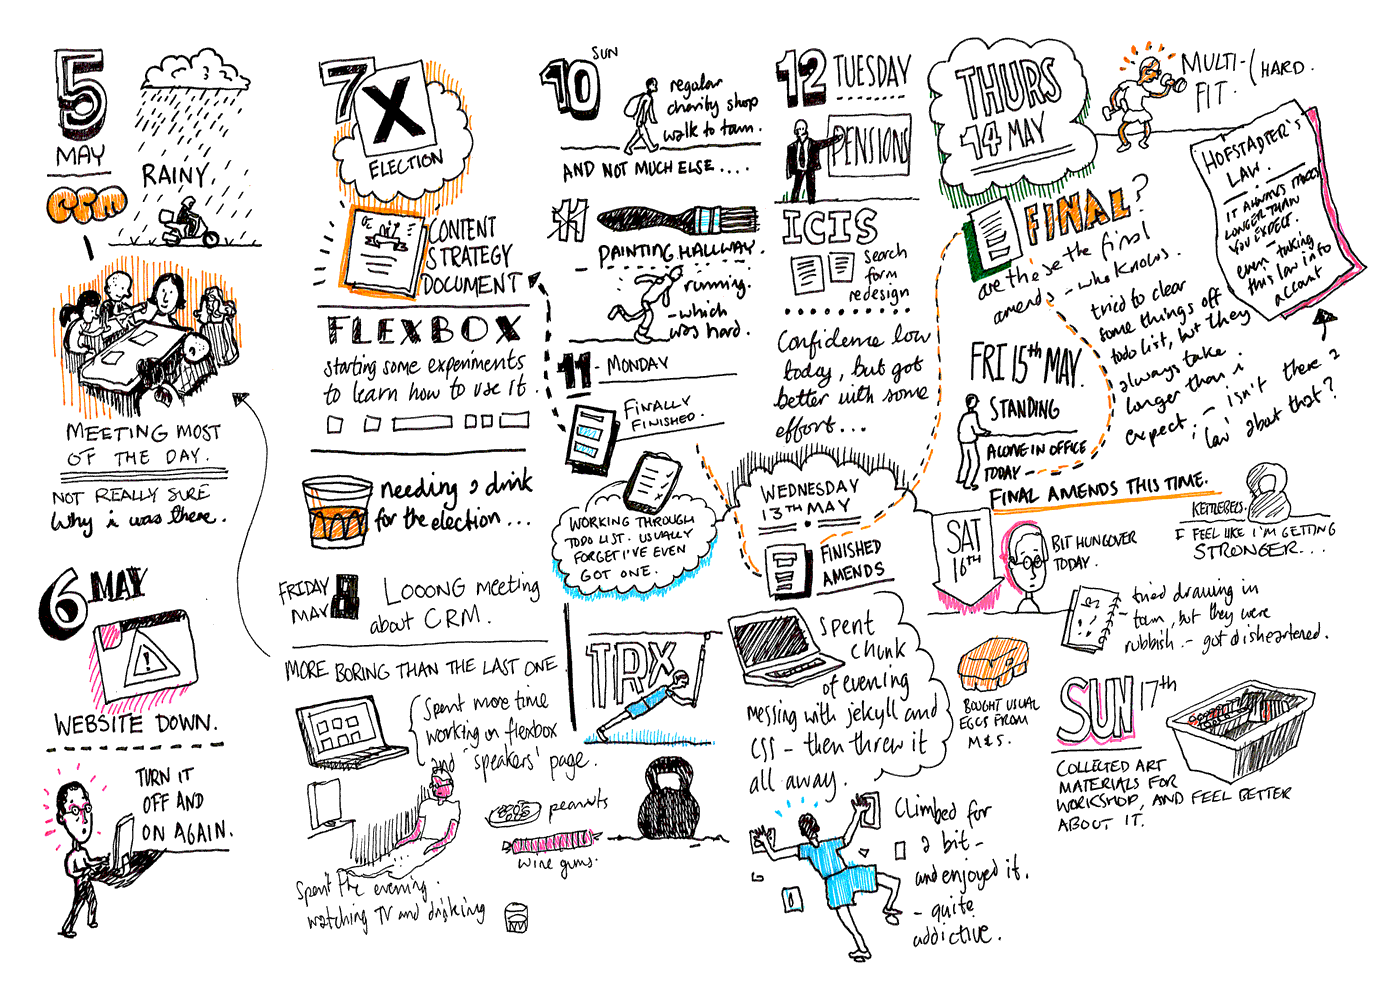 5
MAY
RAINY
CRM
MEETING MOST
OF THE DAY.
NOT REALLY SURE
why i was there.
6 MAY
!
WEBSITE DOWN.
TURN IT
OFF AND
ON AGAIN.
7 X
ELECTION
CONTENT
STRATEGY
DOCUMENT
FLEXBOX
starting some experiments
to learn how to use it.
needing a drink
for the election...
FRIDAY
MAY 8
LOOONG meeting
about CRM.
MORE BORING THAN THE LAST ONE
Spent more time
working on flexbox
and speakers' page.
peanuts
wine gums.
Spent the evening.
watching TV and drinking
10 SUN
regular
charity shop
walk to town.
AND NOT MUCH ELSE....
11
PAINTING HALLWAY.
running.
- which
was hard.
11 - MONDAY
FINALLY
FINISHED.
WORKING THROUGH
TODO LIST. USUALLY
FORGET I'VE EVEN
GOT ONE.
TRX
12 TUESDAY
PENSIONS
ICIS
search
form
redesign
Confidence low
today, but got
better with some
effort...
WEDNESDAY
13TH MAY
FINISHED
AMENDS
Spent
chunk
of evening
messing with jekyll and
CSS - then threw it
all away.
Climbed for
a bit -
and enjoyed it.
- quite
addictive.
THURS
14 MAY
MULTI-
FIT.
(HARD.
FINAL?
are these the final
amends - who knows.
tried to clear
some things off
todo list, but they
always take
longer than i
expect. - isn't there a
'law' about that?
HOFSTADTER'S
LAW.
IT ALWAYS TAKES
LONGER THAN
YOU EXPECT.
even taking
this law into
account
FRI 15TH MAY.
STANDING
ALONE IN OFFICE
TODAY
FINAL AMENDS THIS TIME.
KETTLEBELLS.
I FEEL LIKE I'M GETTING
STRONGER...
SAT
16TH
BIT HUNGOVER
TODAY.
- tried drawing in
town, but they were
rubbish. - got disheartened.
BOUGHT USUAL
EGGS FROM
M&S.
SUN 17th
COLLECTED ART
MATERIALS FOR
WORKSHOP, AND FEEL BETTER
ABOUT IT.